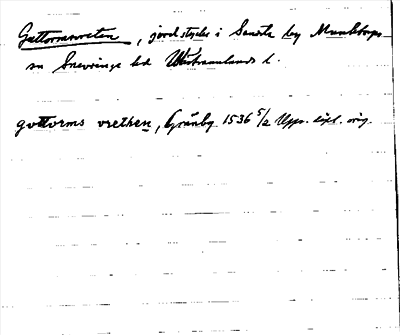 Guttormsvreten, jordstycke i Sandsta by Munktorps
sn Snevringe hd Västmanlands l.
gottorms vrethen, Gränby 1536 5/2 Upps. dipl. orig.